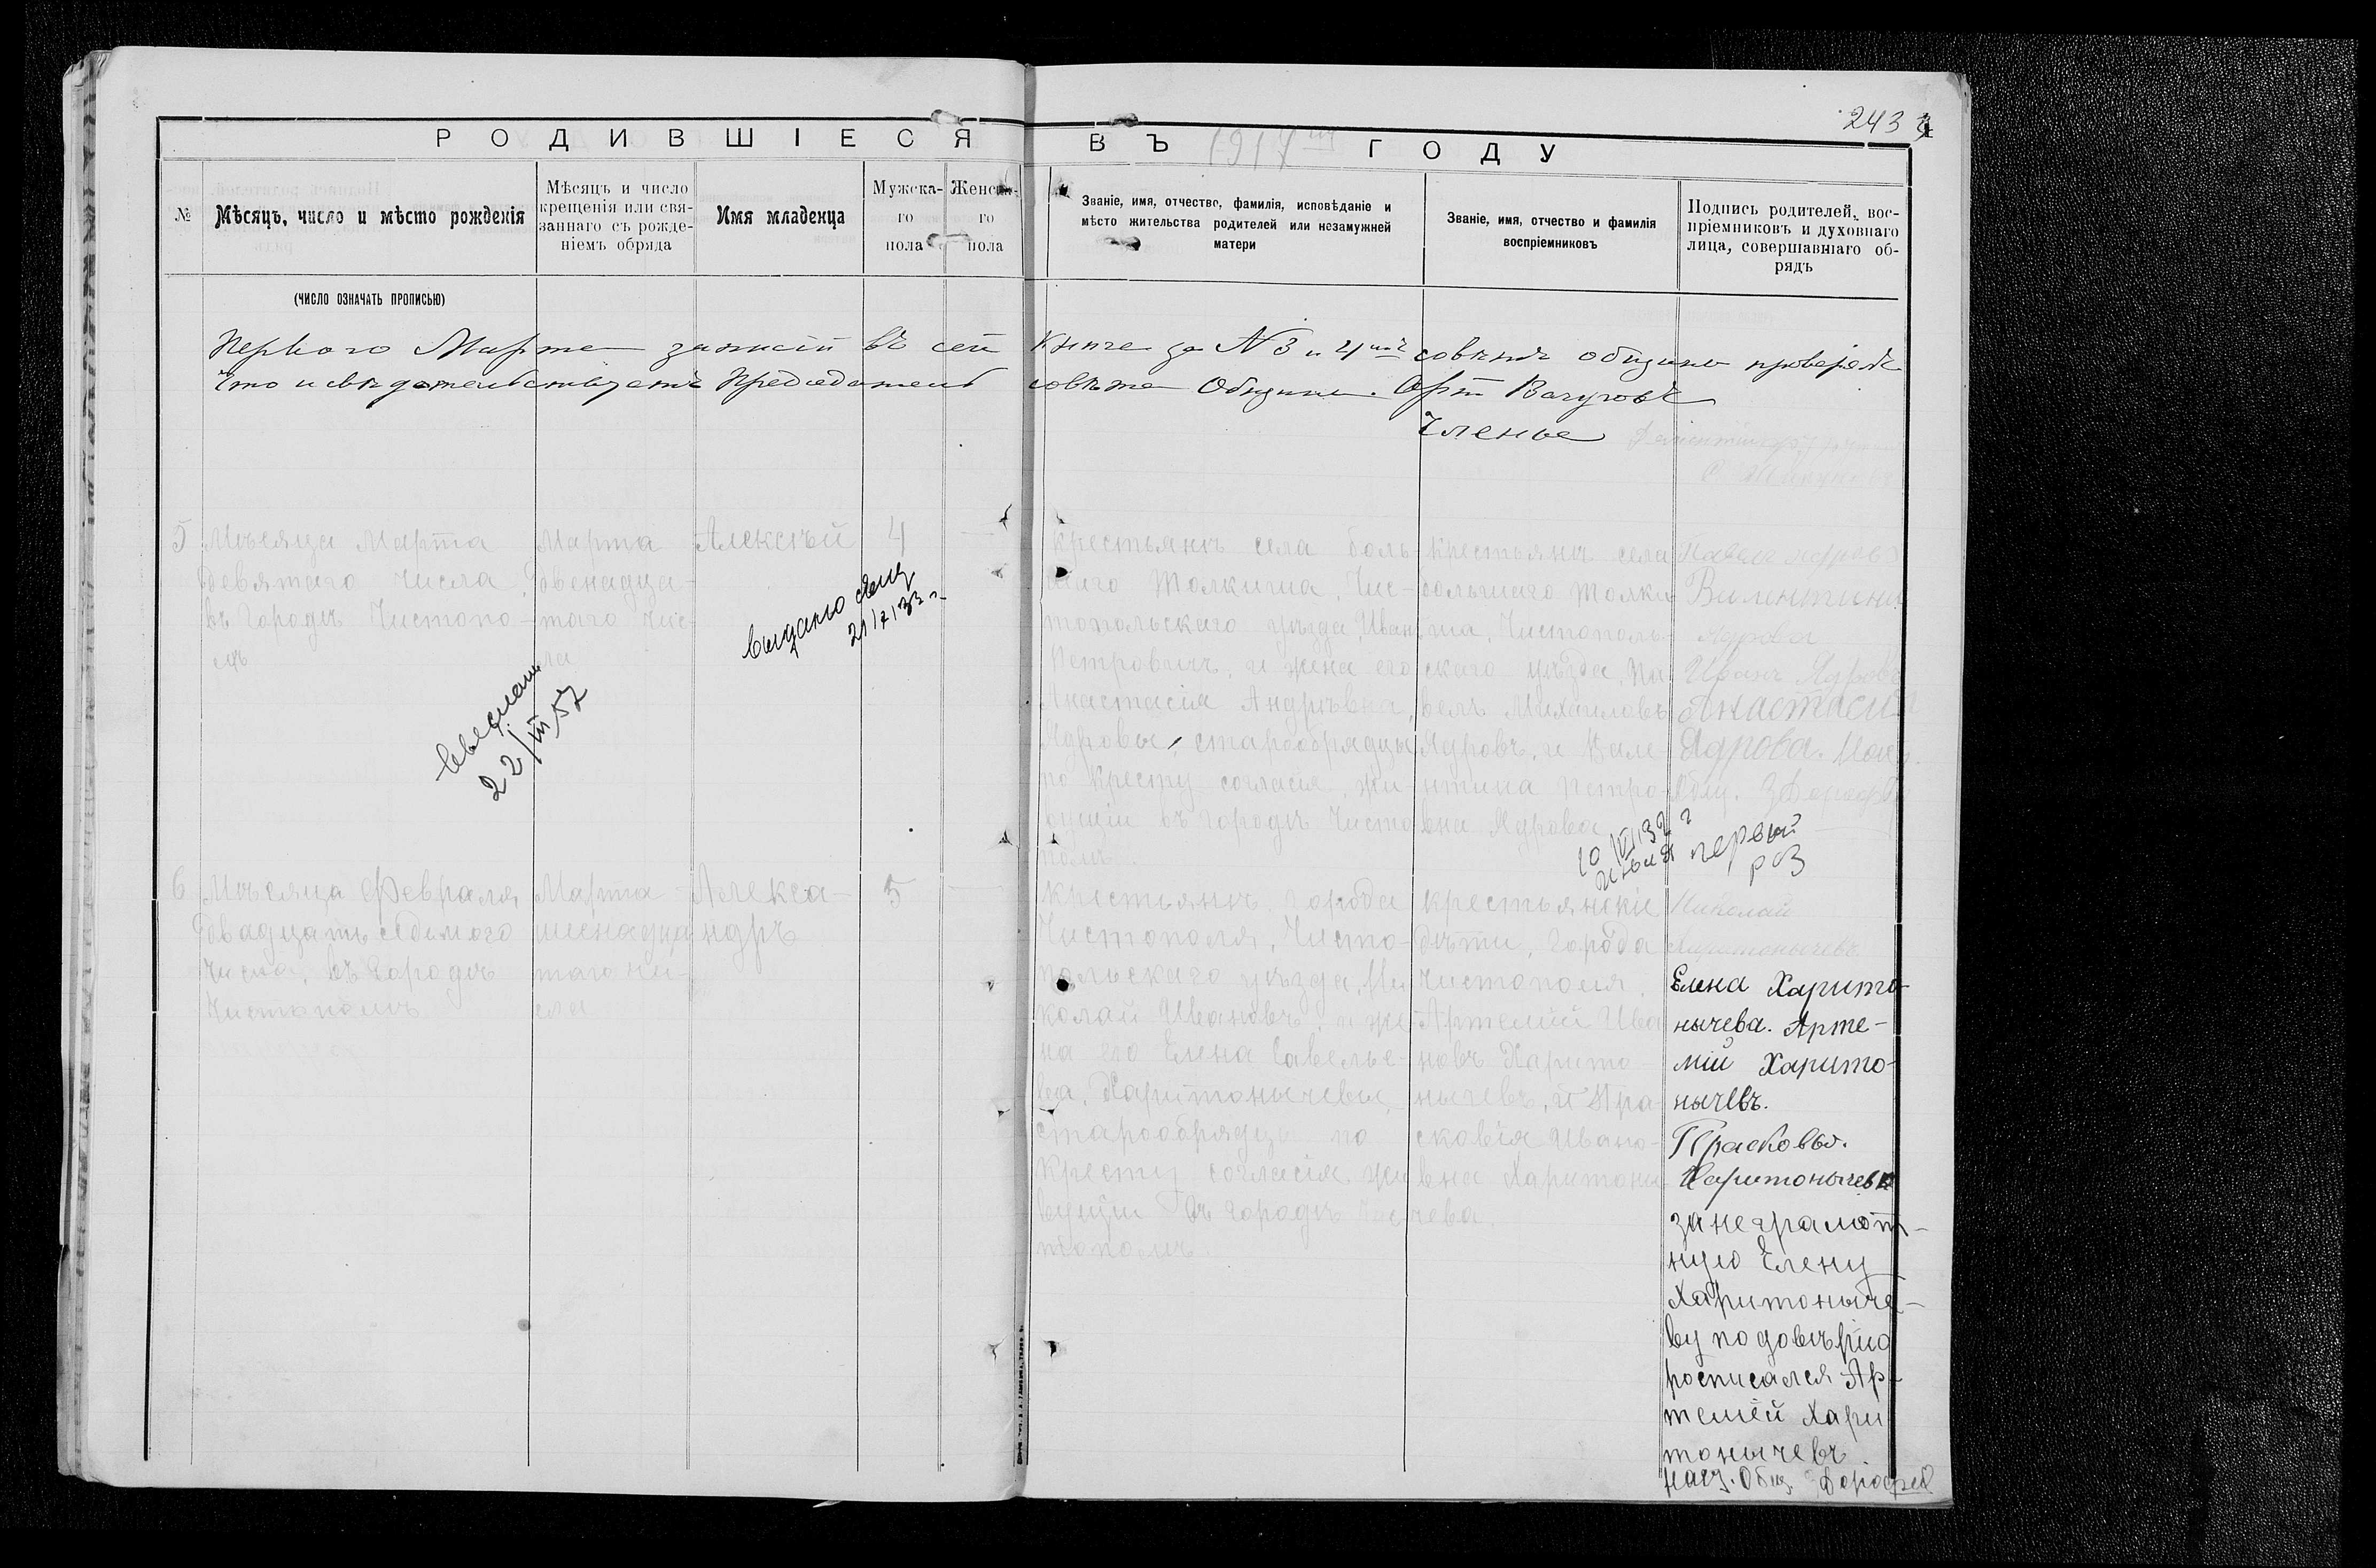 243
РОДИВШІЕСЯ ВЪ 1917 ГОДУ
№
Мѣсяцъ, число и мѣсто рожденія
Мѣсяцъ и число
крещенія или свя-
заннаго съ рожде-
ніемъ обряда
Имя младенца
Мужска-
го
пола
Женска-
го
пола
Званіе, имя, отчество, фамилія, исповѣданіе и
мѣсто жительства родителей или незамужней
матери
Званіе, имя, отчество и фамилія
воспріемниковъ
Подпись родителей, вос-
пріемниковъ и духовнаго
лица, совершавшаго об-
рядъ
(ЧИСЛО ОЗНАЧАТЬ ПРОПИСЬЮ)
Перваго Марта записи въ сей книге за № 3 и 4 совѣтъ общины проверялъ
что и свѣдетельствуетъ Председатель совѣта Общины.
Члены
5
Мѣсяца Марта
Девятаго числа,
въ Городѣ Чистопо-
лѣ
Марта
двенадца-
таго чис-
ла
Алексѣй
4
выдано свид
21/2 33 г.
22/III 57
Крестьянъ села боль-
шаго Толкиша Чис-
топольскаго уѣзда Иванъ
Петровичъ, и жена его
Анастасія Андрѣвна,
Ядровы, старообрядцы
по Кресту согласія, жи-
вущіи въ городѣ Чисто-
полѣ.
крестьянъ села
большаго Толки-
ша, Чистополь-
скаго уѣзда, Па-
велъ Михаиловъ
Ядровъ, и Вале-
нтина Петро-
вна Ядрова
Павелъ Ядровъ
Валентина
Ядрова
Иванъ Ядровъ
Анастасия
Ядрова.
10/VI 32 г
первый
раз
6
Мѣсяца Февраля
двадцать седьмого
числа, въ Городѣ
Чистополѣ
Марта
шенадца
таго чи-
сла
Алекса-
ндръ
5
крестьянъ города
Чистополя, Чисто-
польскаго уѣзда, Ни-
колай Ивановъ, и же-
на его Елена Савелье-
ва, Харитонычевы,
старообрядцы по
Кресту согласія жи
вущіи въ городѣ Чис
тополѣ.
крестьянскіе
дѣти, города
Чистополя,
Артемій Ива
новъ Харито-
нычевъ, и Пра-
сковія Ивано-
вна Харитоны-
чева.
Николай
Харитонычевъ
Елена Харито-
нычева. Арте-
мій Харито-
нычевъ.
Прасковья.
Харитонычева
за неграмот-
ную Елену
Харитоныче-
ву по довѣрію
росписался Ар-
темій Хари
тонычевъ
Наст. Общ. Дорофей